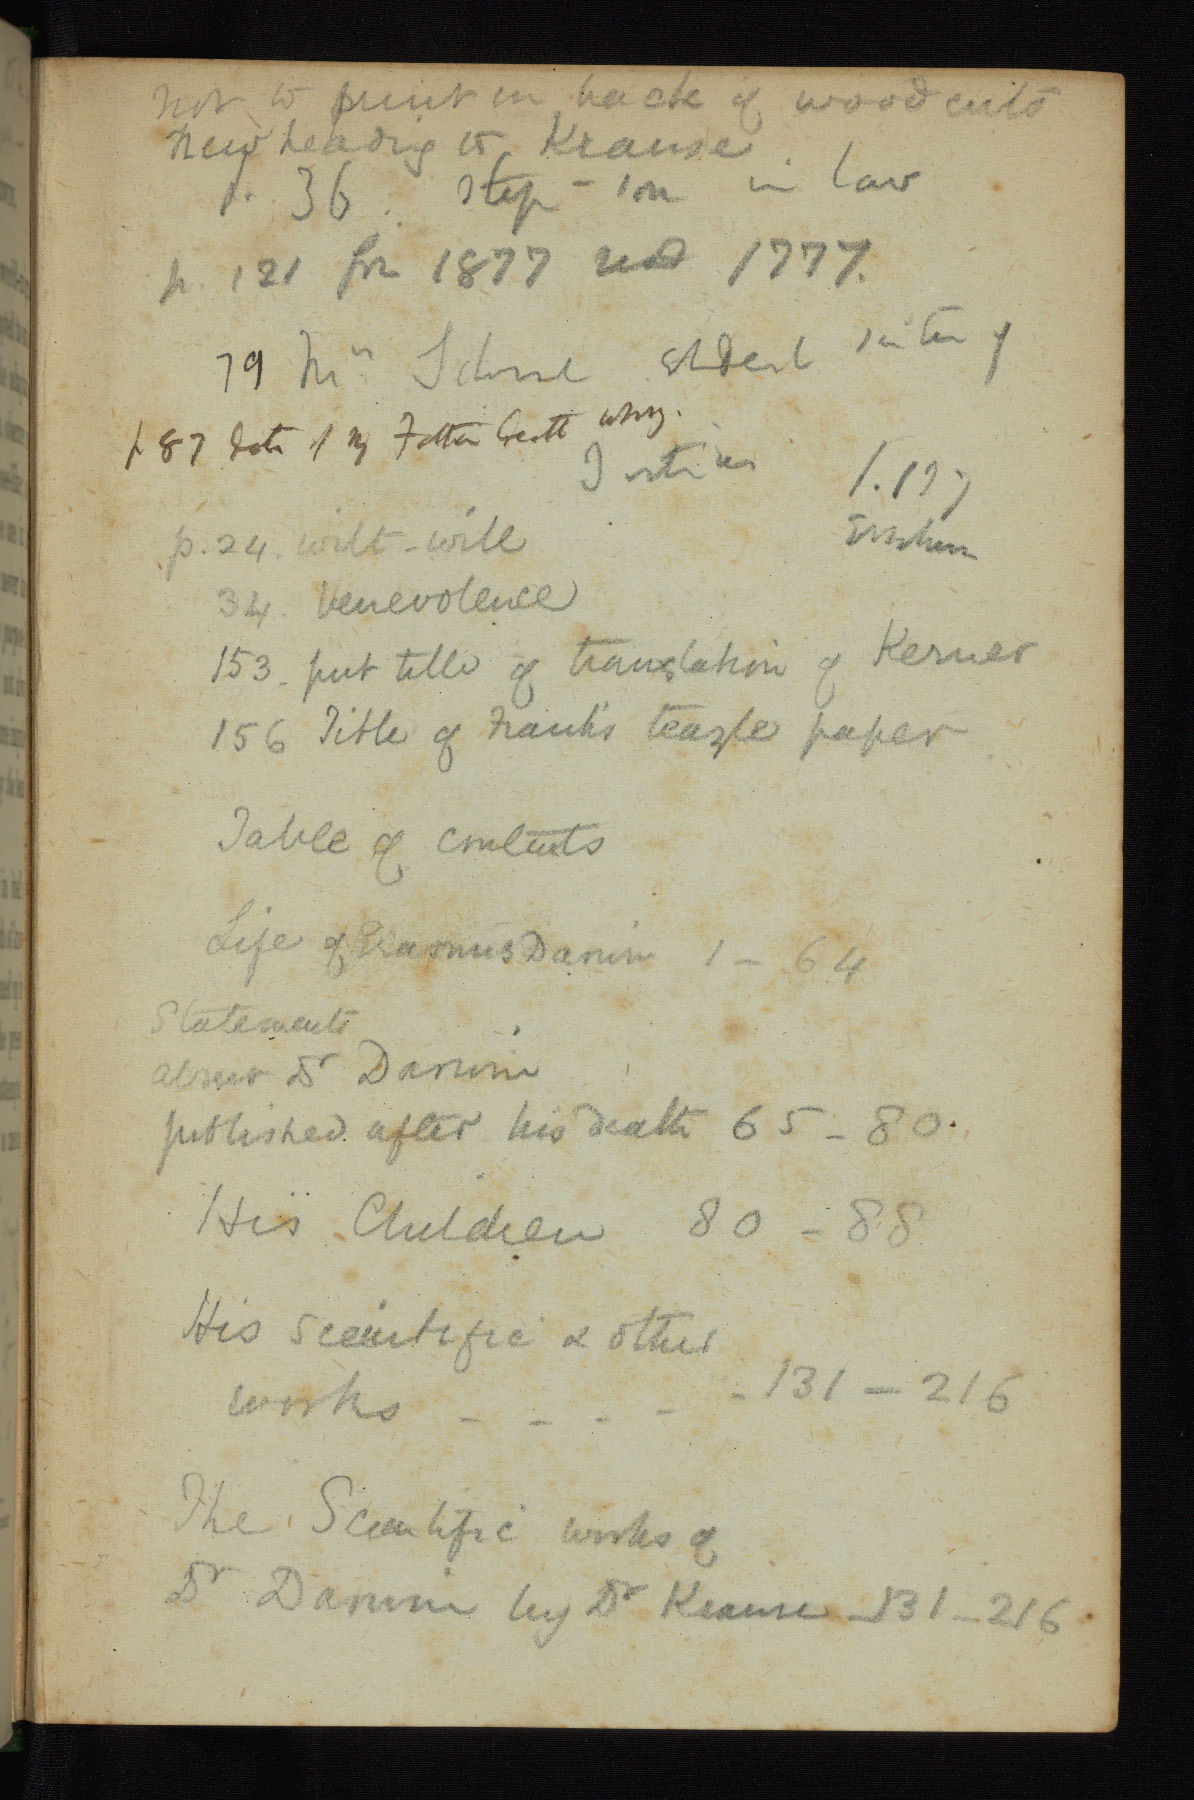 not to print on back of woodcuts
new heading to Krause
p. 36. step-son in law
p. 121 for 1877 read 1777.
79 Mrs Schimmel eldest sister of
p 87 date of my Father birth wrong.
p. 24. wilt-will
34. benevolence
153 put title of translation of Kerner
156 Title of Frank's teazle paper
Table of contents
Life of Erasmus Darwin 1 – 64
Statements
about Dr Darwin
published after his death 65 – 80.
His Children 80 – 88
His scientific & other
works - - - - - 131 – 216
The Scientific works of
Dr Darwin by Dr Krause – 131 – 216